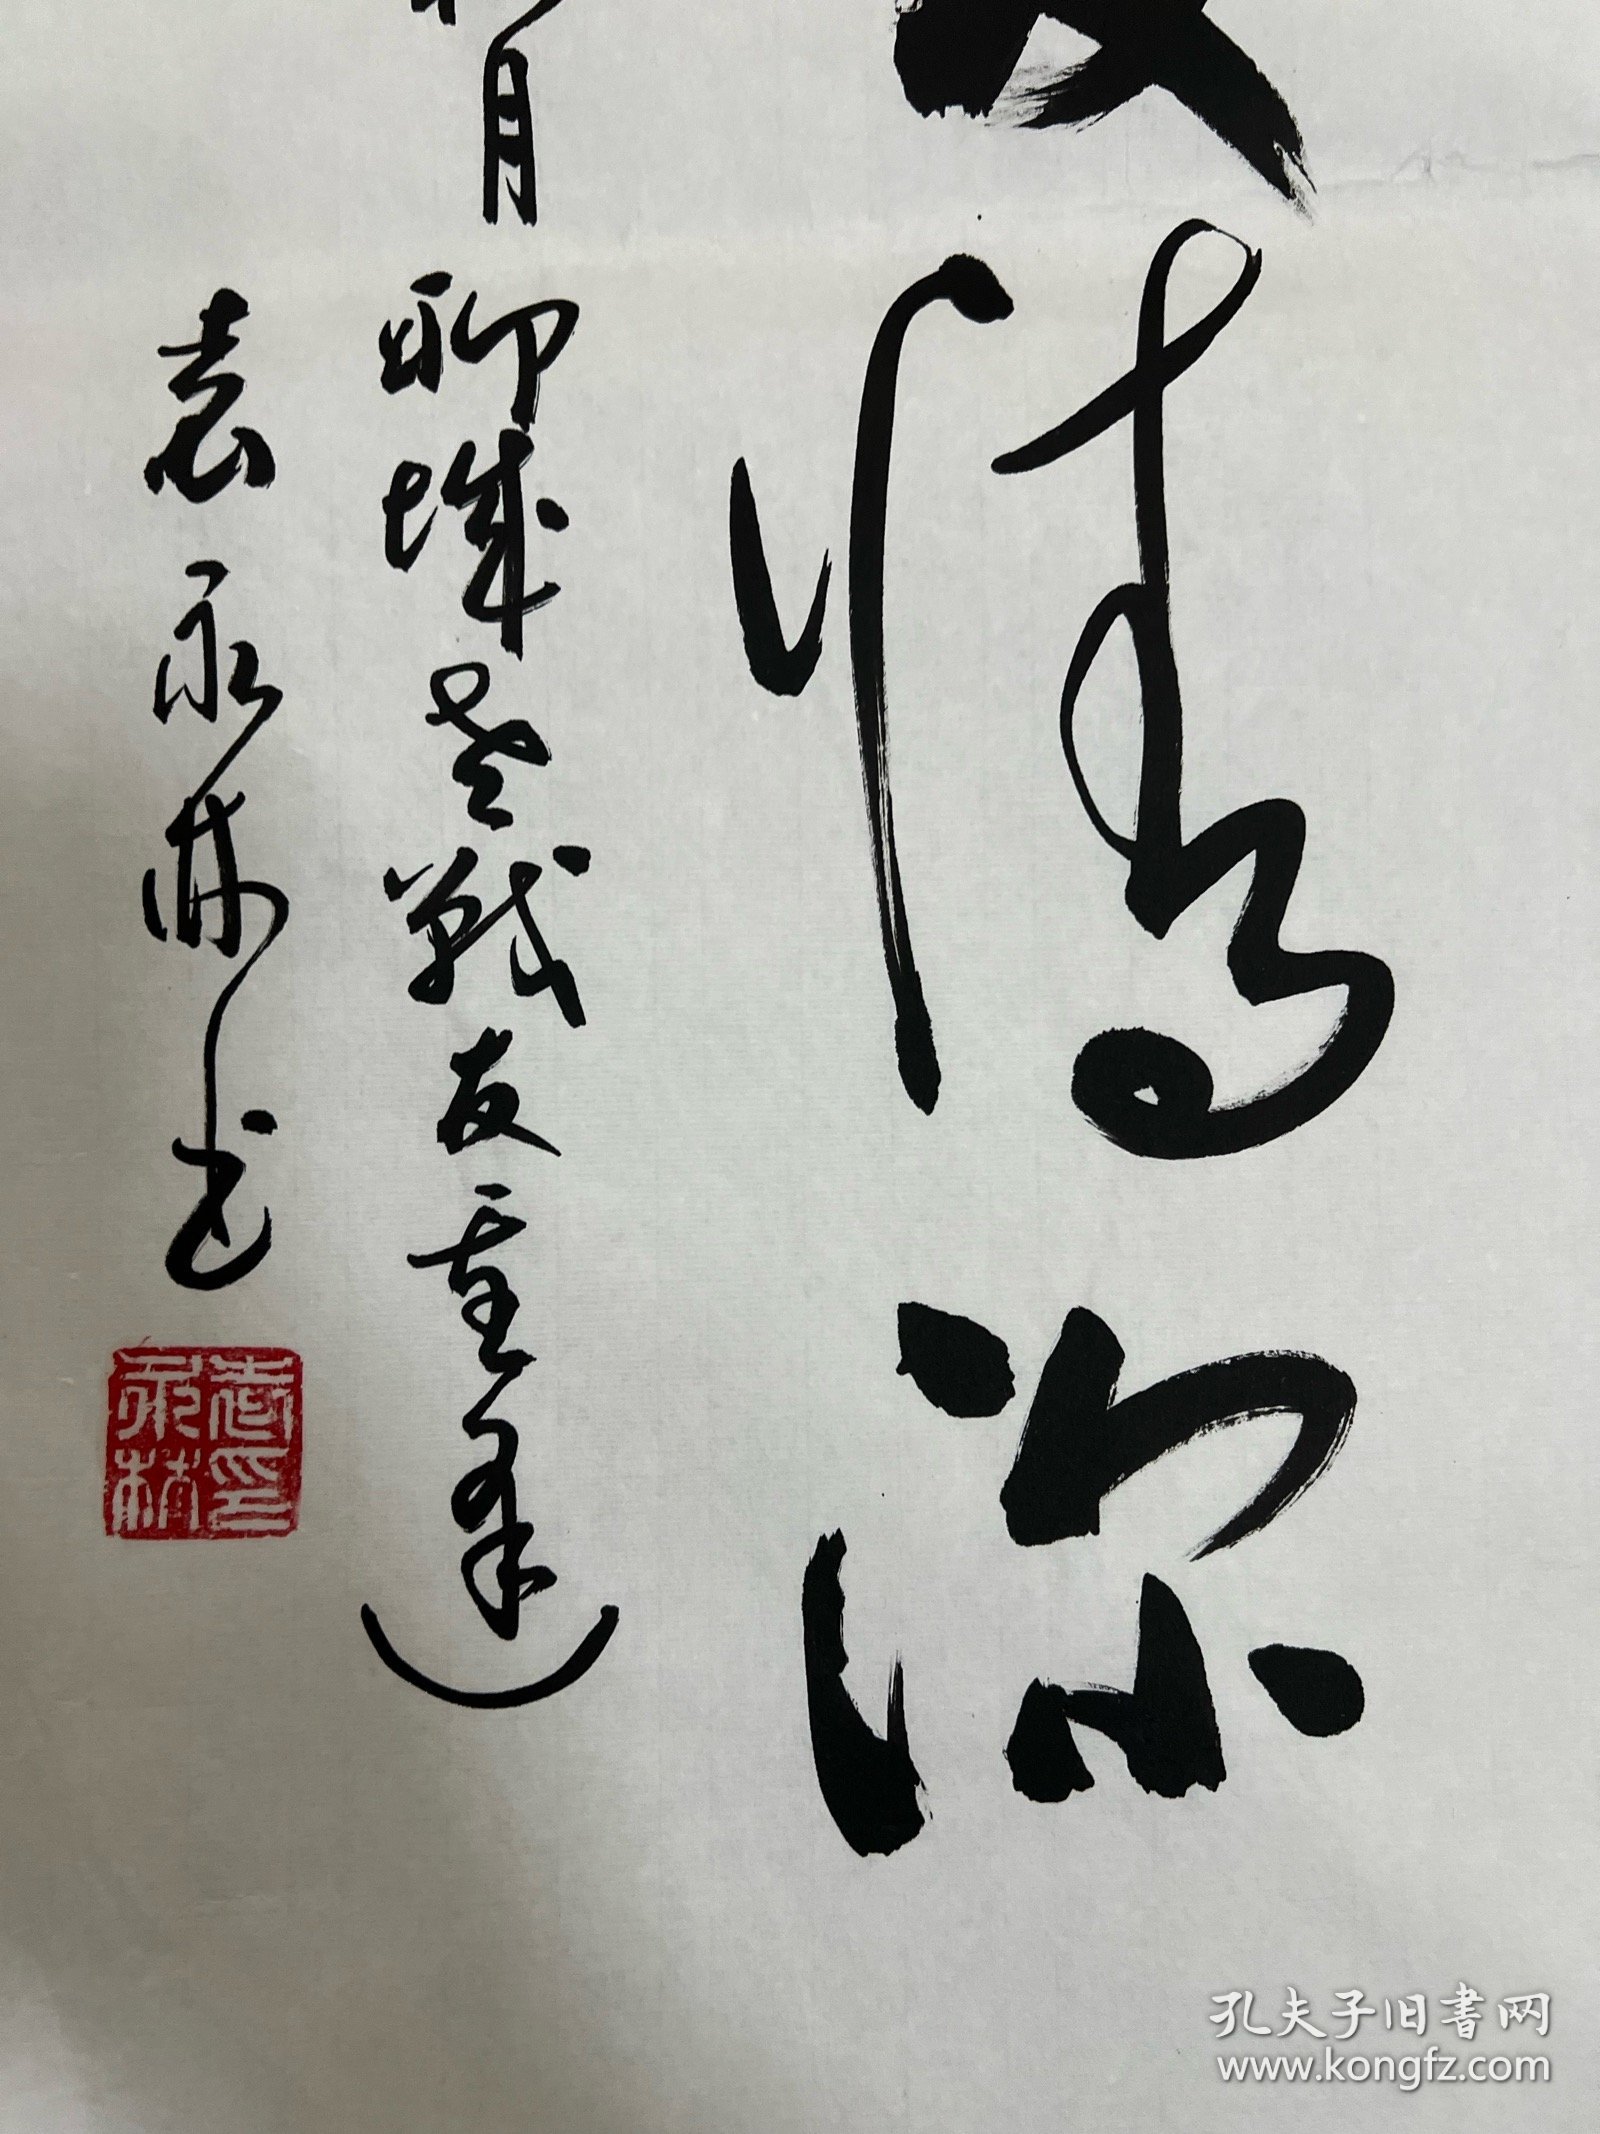 情深
月聊城老战友重逢
袁永林书
袁永林印
孔夫子旧书网
www.kongfz.com